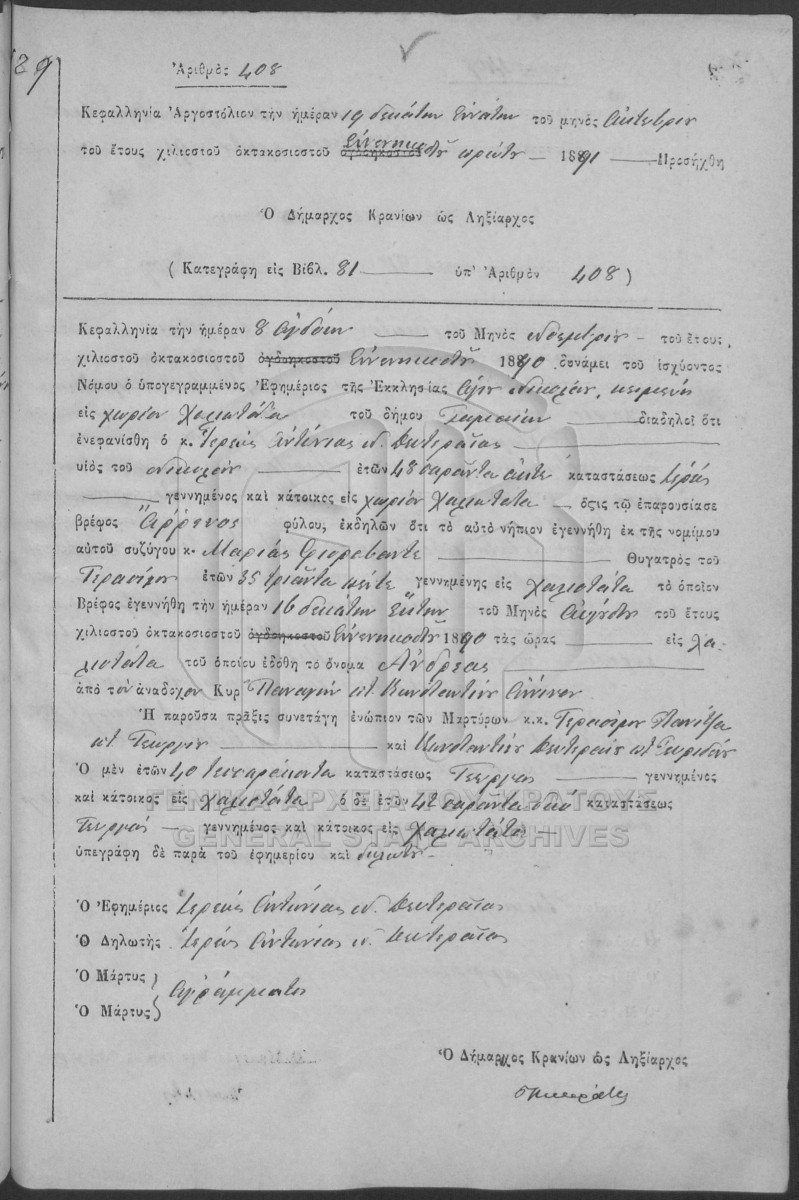 89
Ἀριθμὸς 408
Κεφαλληνία Ἀργοστόλιον τὴν ἡμέραν 19 δεκάτην ἐννάτην τοῦ μηνὸς Ὀκτωβρίου
τοῦ ἔτους χιλιοστοῦ ὀκτακοσιοστοῦ ὀγδοηκοστοῦ ἐννενηκοστοῦ πρώτου — 1891 — Προσήχθη
Ὁ Δήμαρχος Κρανίων ὡς Ληξίαρχος
(Κατεγράφη εἰς Βιβλ. 81 — ὑπ' Ἀριθμὸν 408)
Κεφαλληνία τὴν ἡμέραν 8 ὀγδόην — τοῦ Μηνὸς Νοεμβρίου — τοῦ ἔτους
χιλιοστοῦ ὀκτακοσιοστοῦ ὀγδοηκοστοῦ ἐννενηκοστοῦ 1890 δυνάμει τοῦ ἰσχύοντος
Νόμου ὁ ὑπογεγραμμένος Ἐφημέριος τῆς Ἐκκλησίας Ἁγίου Νικολάου, κειμένης
εἰς χωρίον Χαλιοτάτα τοῦ δήμου — διαδηλοῖ ὅτι
ἐνεφανίσθη ὁ κ. Ἱερεὺς Ἀντώνιος ν. Δευτεραῖος
υἱὸς τοῦ Νικολάου — ἐτῶν 48 σαράντα ὀκτὼ καταστάσεως ἱερεὺς
— γεννημένος καὶ κάτοικος εἰς χωρίον Χαλιοτάτα — ὅςτις τῷ ἐπαρουσίασε
βρέφος Ἄῤῥενος φύλου, ἐκδηλῶν ὅτι τὸ αὐτὸ νήπιον ἐγεννήθη ἐκ τῆς νομίμου
αὐτοῦ συζύγου κ. Μαρίας Φιοραβάντε — Θυγατρὸς τοῦ
Γερασίμου ἐτῶν 35 τριάντα πέντε γεννημένης εἰς Χαλιοτάτα τὸ ὁποῖον
Βρέφος ἐγεννήθη τὴν ἡμέραν 16 δεκάτην ἕκτην τοῦ Μηνὸς Αὐγούστου τοῦ ἔτους
χιλιοστοῦ ὀκτακοσιοστοῦ ὀγδοηκοστοῦ ἐννενηκοστοῦ 1890 τὰς ὥρας — εἰς Χα-
λιοτάτα τοῦ ὁποίου ἐδόθη τὸ ὄνομα Ἀνδρέας
ἀπὸ τὸν ἀνάδοχον Κυρ Παναγὴν Κωνσταντίνου
Ἡ παροῦσα πρᾶξις συνετάγη ἐνώπιον τῶν Μαρτύρων κ.κ. Γερασίμου
Γεωργίου — καὶ Κωνσταντίνου Δευτεραίου Σπυρίδων
Ὁ μὲν ἐτῶν 40 τεσσαράκοντα καταστάσεως Γεωργὸς — γεννημένος
καὶ κάτοικος εἰς Χαλιοτάτα ὁ δὲ ἐτῶν 42 σαράντα δύο καταστάσεως
Γεωργὸς — γεννημένος καὶ κάτοικος εἰς Χαλιοτάτα —
ὑπεγράφη δὲ παρὰ τοῦ ἐφημερίου καὶ δηλωτοῦ
Ὁ Ἐφημέριος Ἱερεὺς Ἀντώνιος ν. Δευτεραῖος
Ὁ Δηλωτὴς Ἱερεὺς Ἀντώνιος ν. Δευτεραῖος
Ὁ Μάρτυς
Ἀγράμματοι
Ὁ Μάρτυς
Ὁ Δήμαρχος Κρανίων ὡς Ληξίαρχος
ΓΕΝΙΚΑ ΑΡΧΕΙΑ ΤΟΥ ΚΡΑΤΟΥΣ
GENERAL STATE ARCHIVES